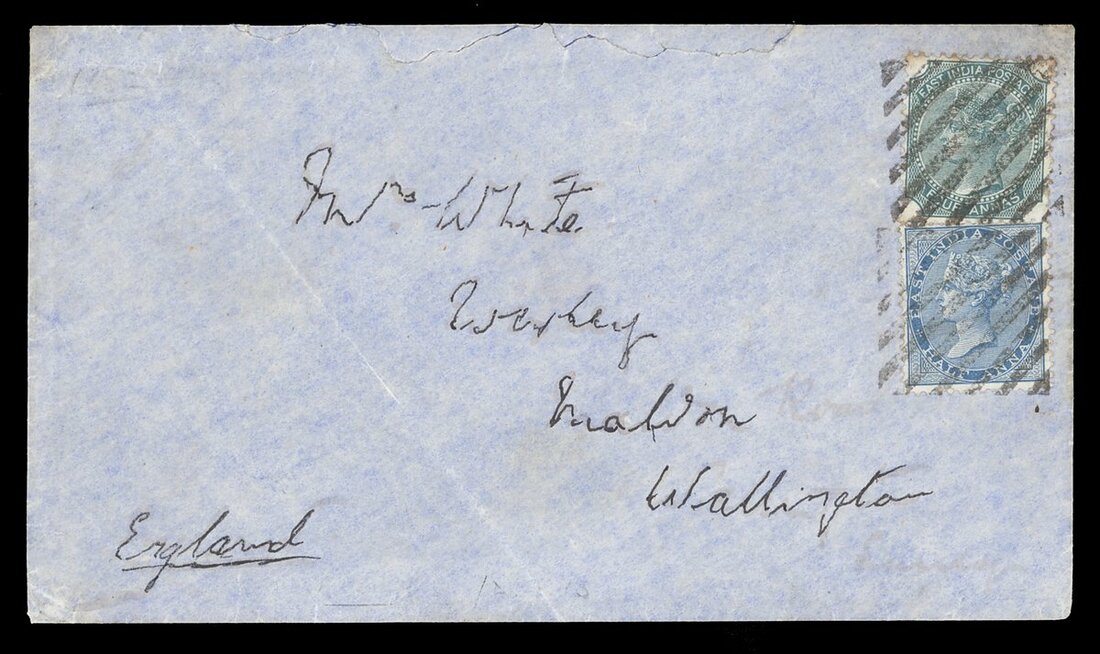 EAST INDIA POSTAGE
FOUR ANNAS
EAST INDIA POSTAGE
HALF ANNA
Mrs White
Maldon
Wallington
England